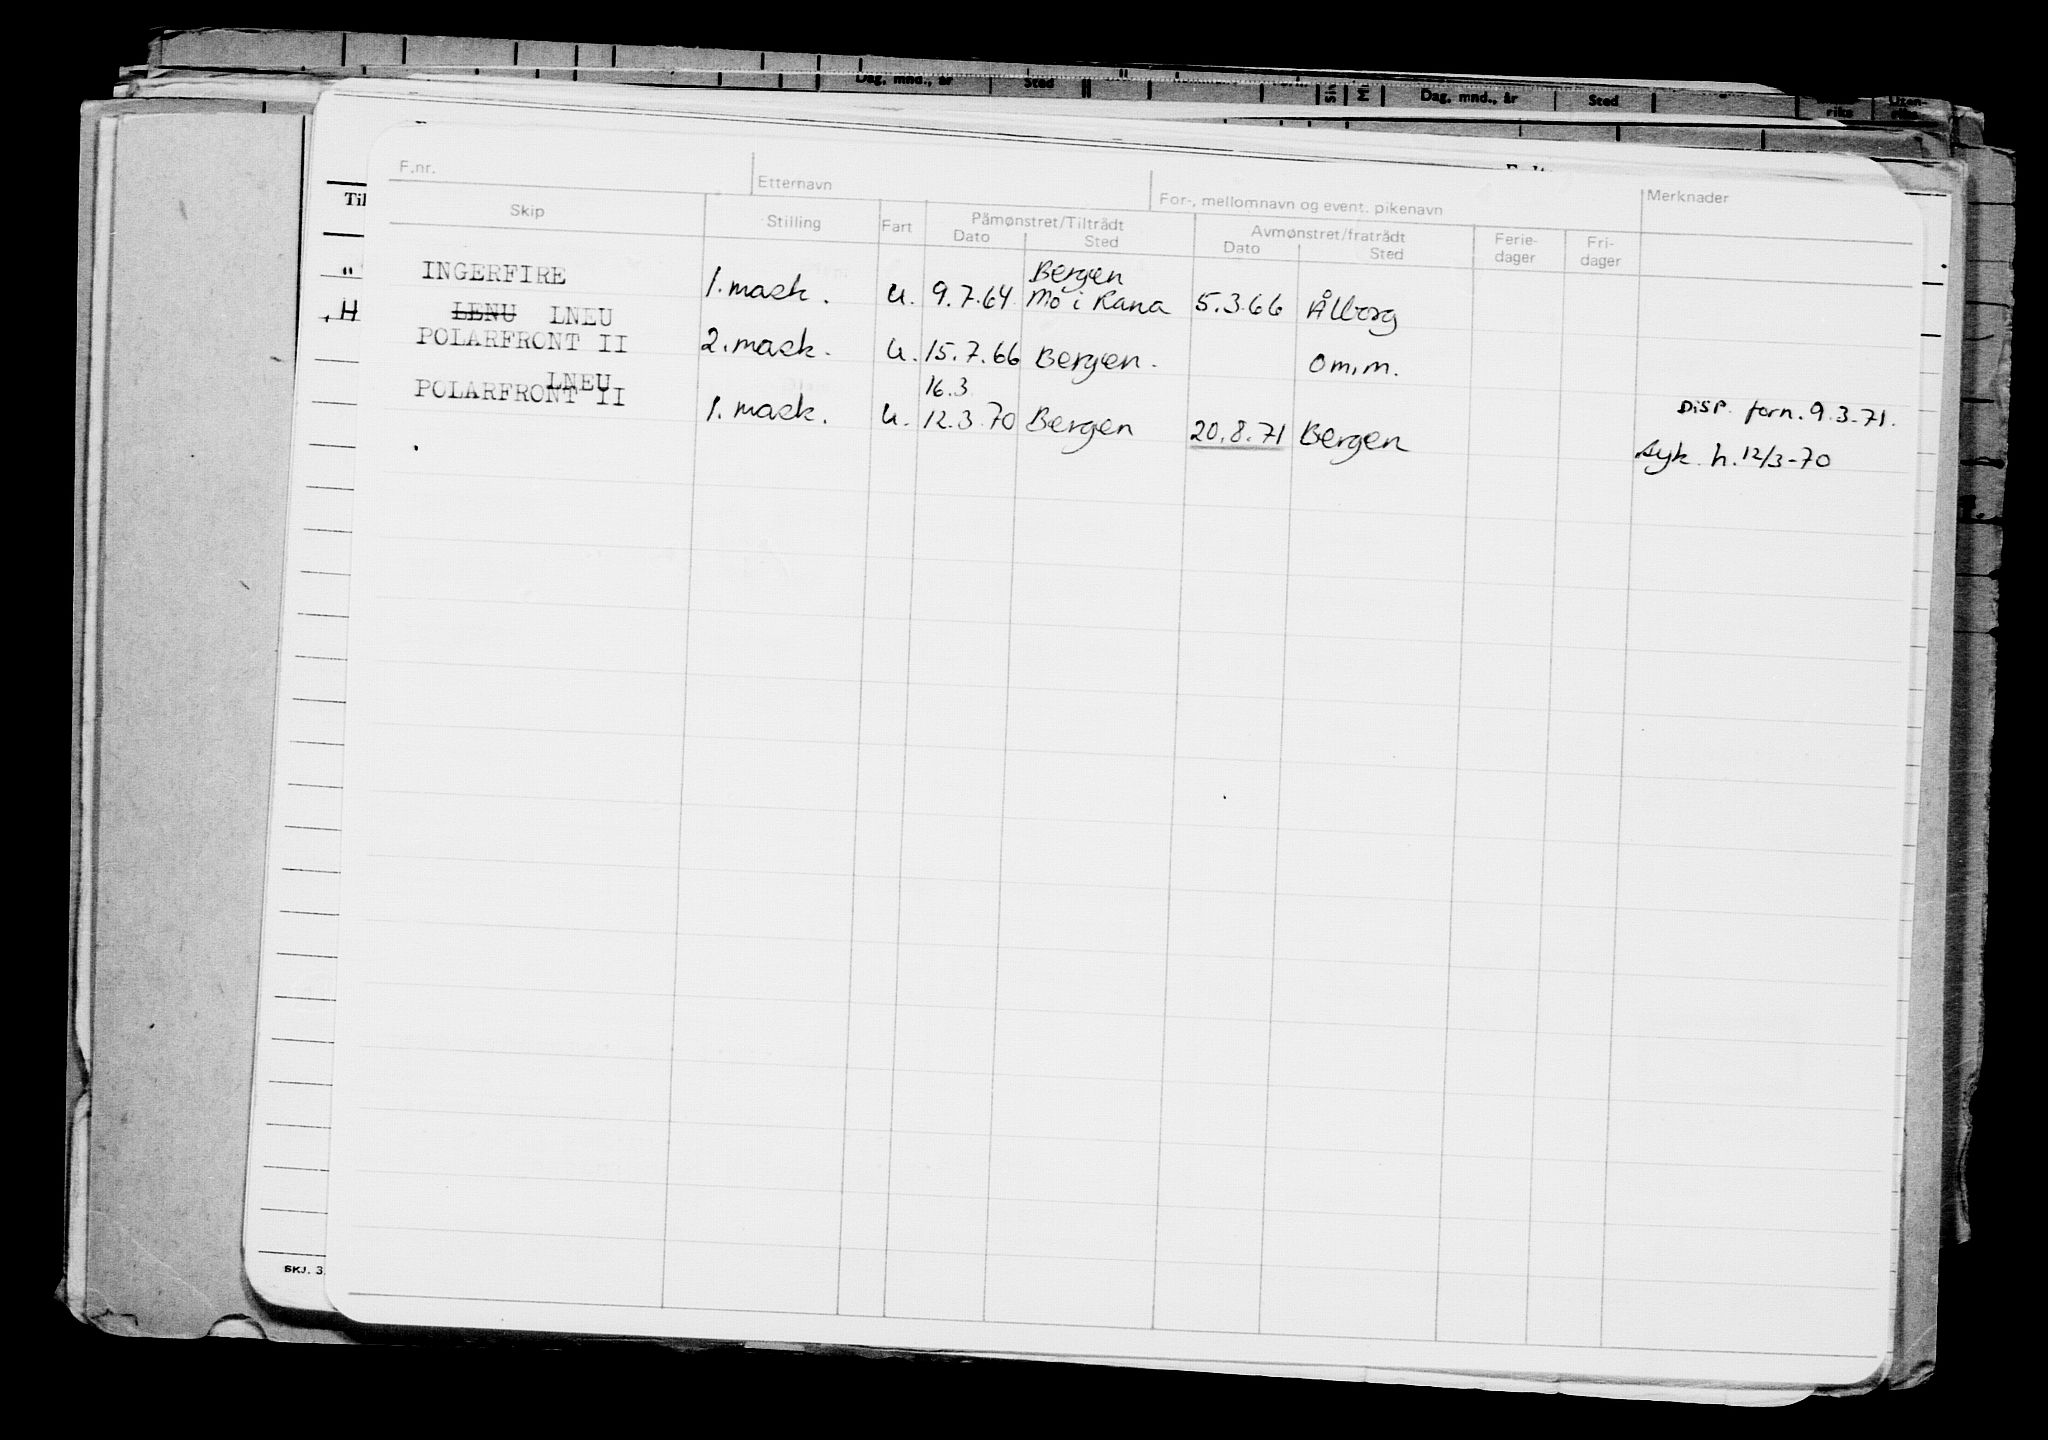 Dag, mnd., år Sted Dag, mnd., år Sted
F.nr. Etternavn For-, mellomnavn og event. pikenavn Merknader
Skip Stilling Fart Påmønstret/Tiltrådt Avmønstret/fratrådt Ferie-dager Fri-dager
Dato Sted Dato Sted
Til
"
H
INGERFIRE 1. mask. u. 9.7.64 Bergen Mo i Rana 5.3.66 Ålborg
LENU LNEU
POLARFRONT II 2. mask. u. 15.7.66 Bergen. Om.m.
LNEU 16.3
POLARFRONT II 1. mask. u. 12.3.70 Bergen 20.8.71 Bergen
DISP. forn. 9.3-71.
Syk. h. 12/3-70
SKJ. 3